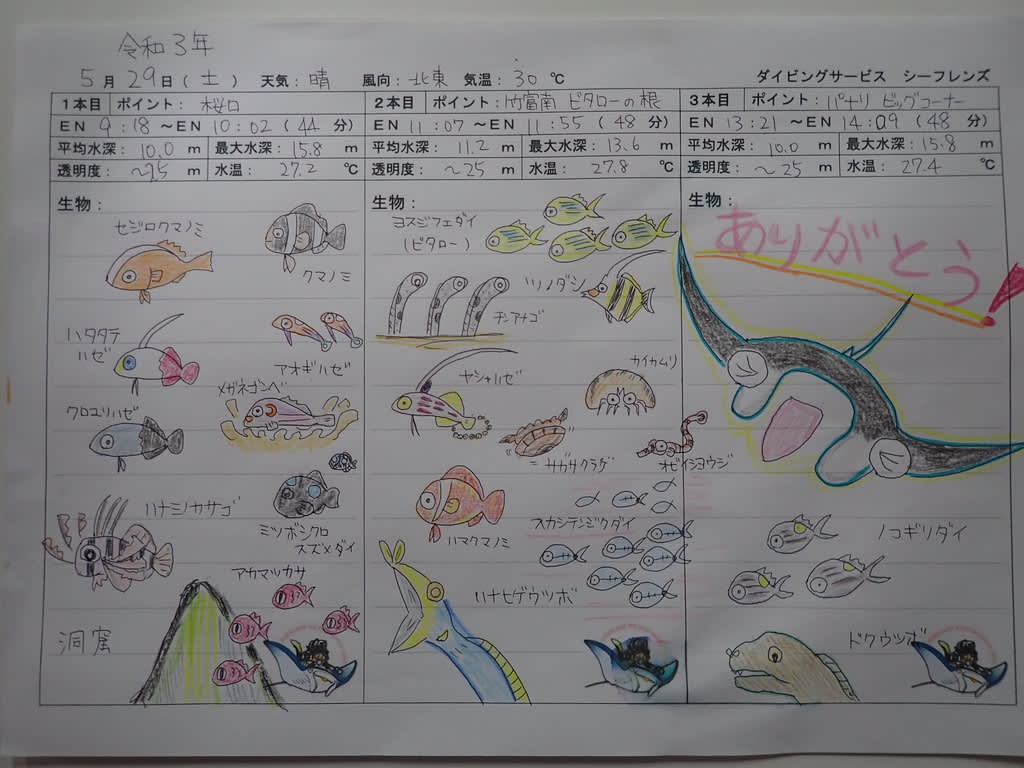 令和3年
5月29日(土) 天気:晴 風向:北東 気温:30℃ ダイビングサービス シーフレンズ
1本目 ポイント: 桜口
EN 9:18～EN 10:02(44分)
平均水深: 10.0 m 最大水深: 15.8 m
透明度: ～25 m 水温: 27.2 ℃
生物:
セジロクマノミ
クマノミ
ハタタテ
ハゼ
アオギハゼ
メガネゴンベ
クロユリハゼ
ハナミノカサゴ
ミツボシクロ
スズメダイ
アカマツカサ
洞窟
2本目 ポイント: 竹富南 ビタローの根
EN 11:07～EN 11:55(48分)
平均水深: 11.2 m 最大水深: 13.6 m
透明度: ～25 m 水温: 27.8 ℃
生物:
ヨスジフエダイ
(ビタロー)
ツノダシ
チンアナゴ
ヤシャハゼ
カイカムリ
ニセガザクラゲ
オビイシヨウジ
スカシテンジクダイ
ハマクマノミ
ハナヒゲウツボ
3本目 ポイント: パナリ ビッグコーナー
EN 13:21～EN 14:09(48分)
平均水深: 10.0 m 最大水深: 15.8 m
透明度: ～25 m 水温: 27.4 ℃
生物:
ありがとう
ノコギリダイ
ドクウツボ